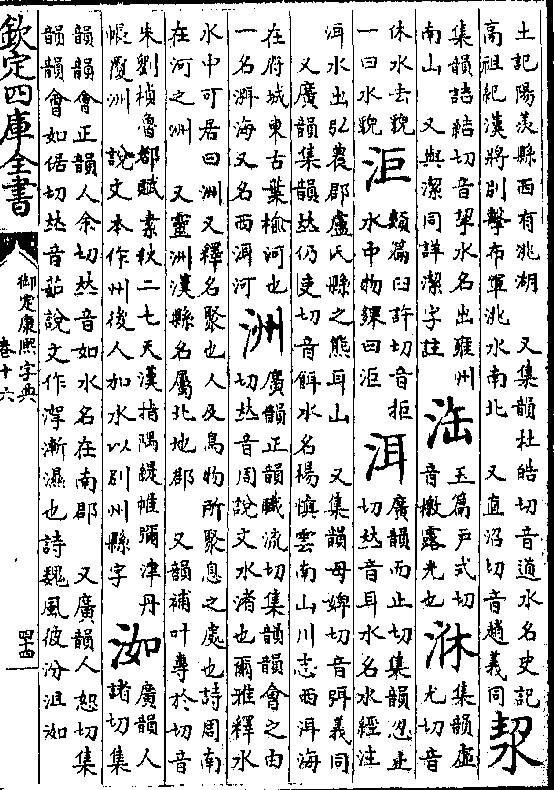 土記陽羨縣西有洮湖 又集韻杜皓切音道水名史記
高祖紀漢將別擊布軍洮水南北 又直沼切音趙義同
洯
集韻詰結切音挈水名出雍州
南山 又與潔同詳潔字註
玉篇戶式切
音檄露光也
㳜
集韻虛
尤切音
休水去貌
一曰水貌
洰
類篇臼許切音拒
水中物夥曰洰
洱
廣韻而止切集韻忍止
切𠀤音耳水名水經注
洱水出弘農郡盧氏縣之熊耳山 又集韻母婢切音弭義同
又廣韻集韻𠀤仍吏切音餌水名楊慎雲南山川志西洱海
在府城東古葉榆河也
一名洱海又名西洱河
洲
廣韻正韻職流切集韻韻會之由
切𠀤音周說文水渚也爾雅釋水
水中可居曰洲又釋名聚也人及鳥物所聚息之處也詩周南
在河之洲 又靈洲漢縣名屬北地郡 又韻補叶專於切音
朱劉楨魯都賦素秋二七天漢指隅緹帷彌津丹
帳覆洲 說文本作州後人加水以別州縣字
洳
廣韻人
諸切集
韻韻會正韻人余切𠀤音如水名在南郡 又廣韻人恕切集
韻韻會如倨切𠀤音茹說文作澤漸濕也詩魏風彼汾沮洳
欽定四庫全書
御定康熙字典
卷十六
四十四